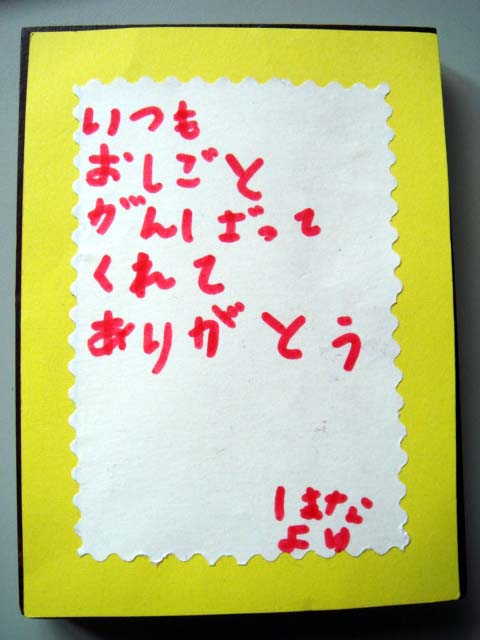 いつも
おしごと
がんばって
くれて
ありがとう
はなな
より